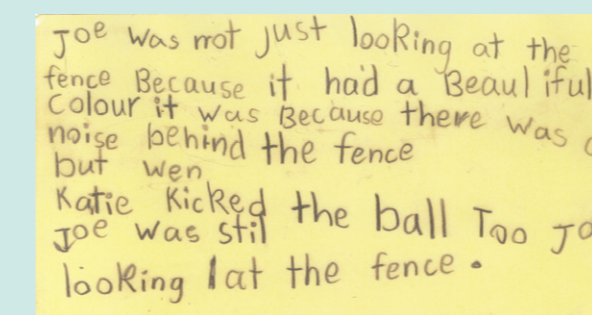 Joe was not just looking at the
fence Because it had a Beaul iful
Colour it was Because there was
noise behind the fence
but wen
Katie Kicked the ball Too Jo
Joe was stil
looking at the fence.